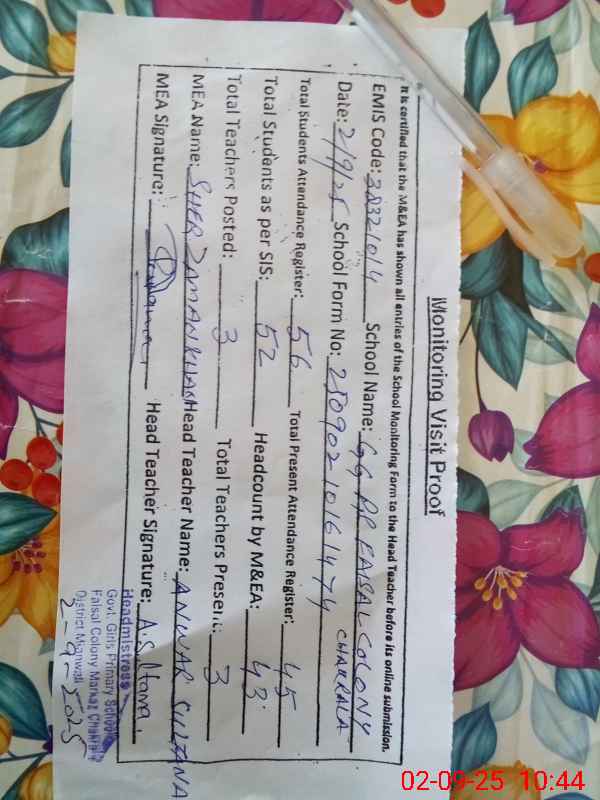 Monitoring Visit Proof
It is certified that the M&EA has shown all entries of the School Monitoring Form to the Head Teacher before its online submission.
EMIS Code: 38321014 School Name: GGPP FAISAL COLONY
CHAKRALA
Date: 2/9/25 School Form No: 2509021061474
Total Students Attendance Register: 56 Total Present Attendance Register: 45
Total Students as per SIS: 52 Headcount by M&EA: 43
Total Teachers Posted: 3 Total Teachers Present: 3
MEA Name: SHER ZAMAN Head Teacher Name: ANWAR SULTANA
MEA Signature: Head Teacher Signature: A.Sltana.
Headmistress
Govt. Girls Primary School
Faisal Colony Markaz Chakrala
District Mianwali
2-9-2025
02-09-25 10:44